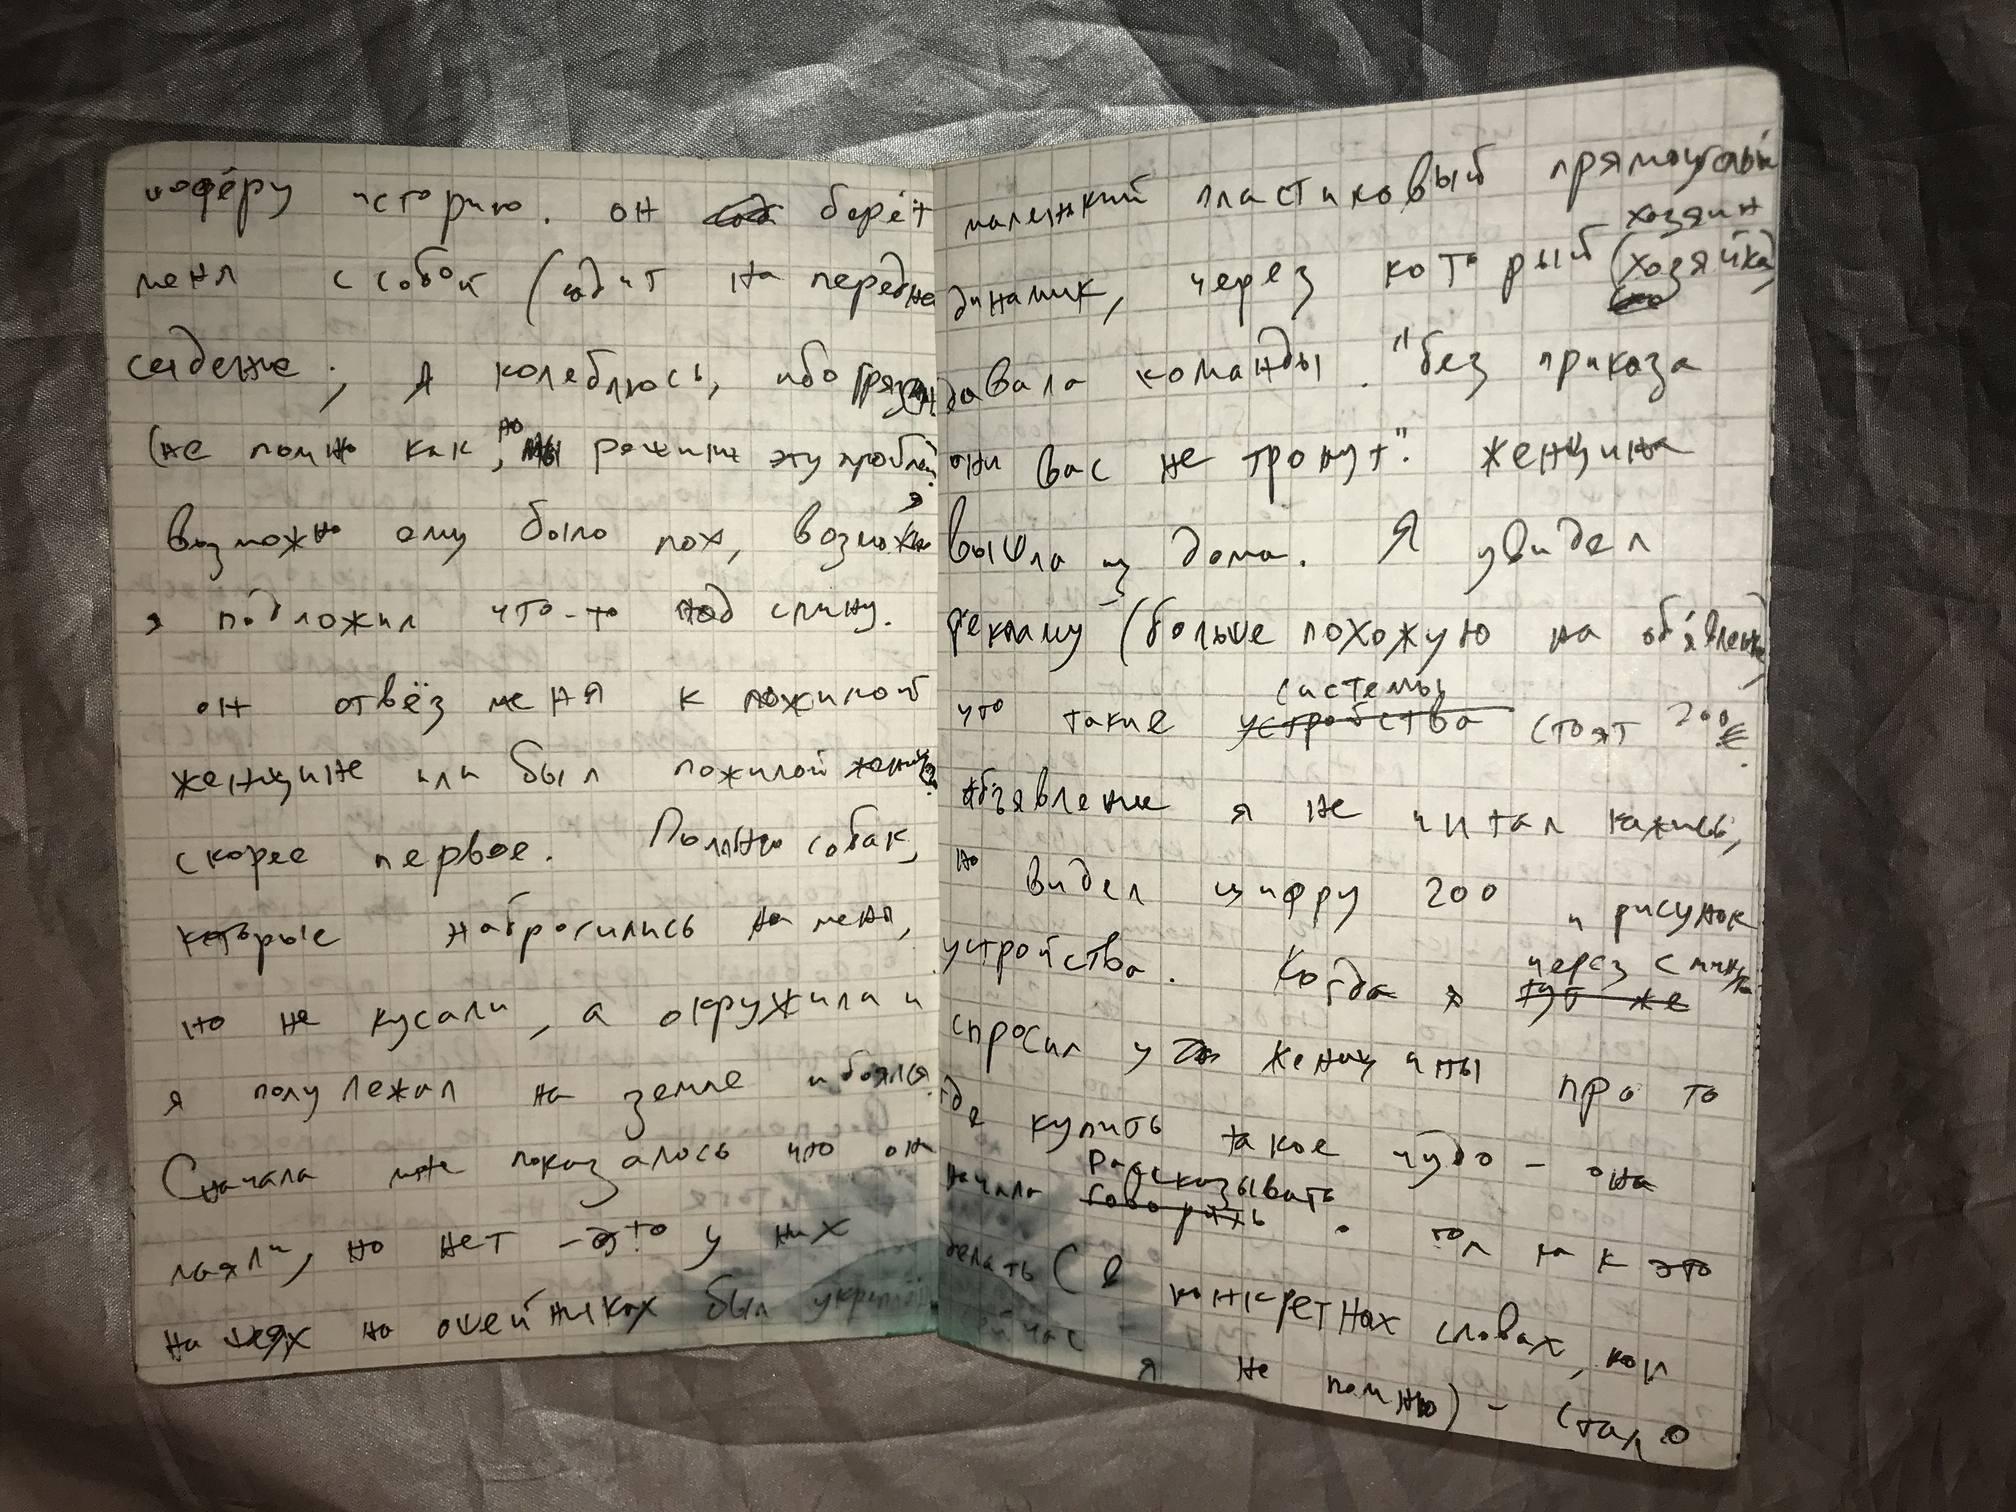 шофёру историю. он берёт
меня с собой ( на передне
сиденье; я колеблюсь, ибо грязен
(не помню как, но мы решили эту пробле
возможно ему было пох, возможно я
я подложил что-то под спину.
он отвёз меня к пожилой
женщине или был пожилой
скорее первое. Полно собак,
которые набросились на меня,
но не кусали, а окружили и
я полулежал на земле и боялся
Сначала мне показалось что они
лаяли, но нет - это у них
на шеях на ошейниках был укреплён
маленький пластиковый прямоугольный
хозяин
динамик, через который (хозяйка)
давала команды. "без приказа
они вас не тронут". женщина
вышла из дома. Я увидел
рекламу (больше похожую на объявление)
системы
что такие устройства стоят 200€.
объявление я не читал кажись,
но видел цифру 200 и рисунок
устройства. Когда я через
тут же
спросил у женщины про то
где купить такое чудо - она
рассказывать
начала говорить. как это
делать (в конкретных словах,
я не помню) -